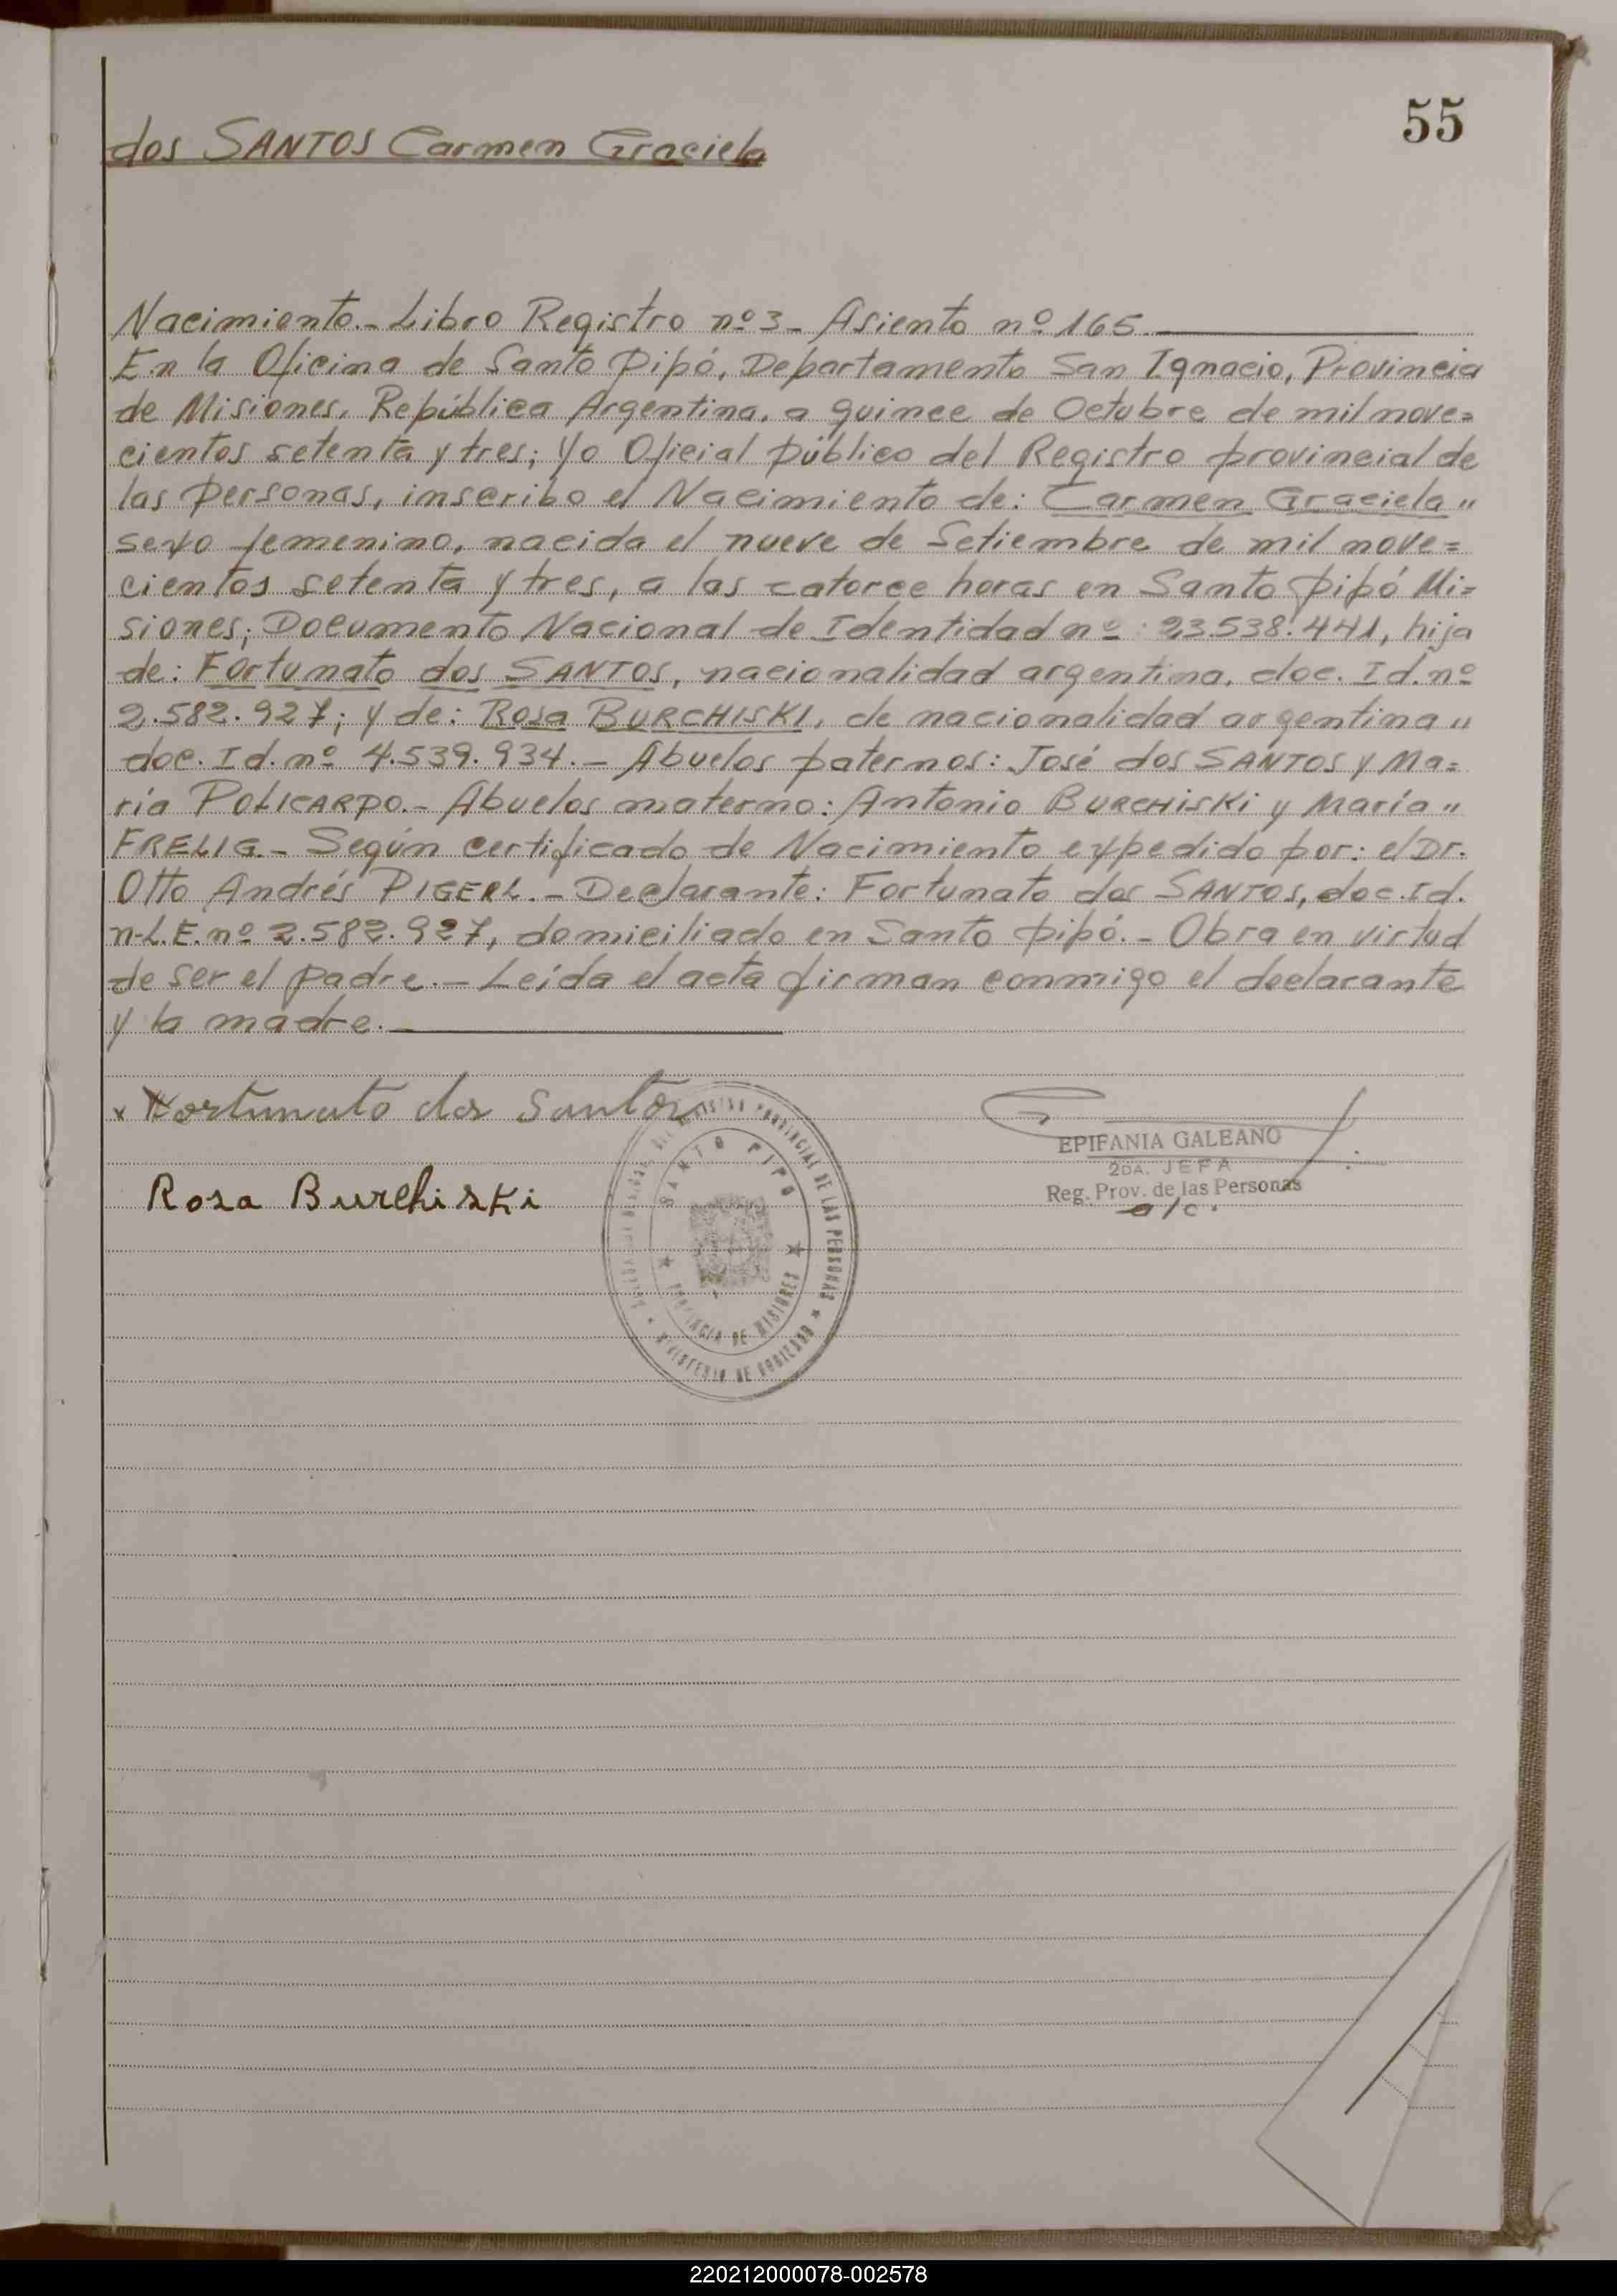 55
dos SANTOS Carmen Graciela
Nacimiento.- Libro Registro nº 3 - Asiento nº 165.
En la Oficina de Santo Pipó, Departamento San Ignacio, Provincia
de Misiones, República Argentina, a quince de Octubre de mil nove=
cientos setenta y tres; Yo Oficial Público del Registro provincial de
las Personas, inscribo el Nacimiento de: Carmen Graciela "
sexo femenino, nacida el nueve de Setiembre de mil nove=
cientos setenta y tres, a las catorce horas en Santo Pipó Mi=
siones; Documento Nacional de Identidad nº: 23.538.441, hija
de: Fortunato dos SANTOS, nacionalidad argentina, doc. Id. nº
2.582.927; y de: Rosa BURCHISKI, de nacionalidad argentina "
doc. Id. nº 4.539.934.- Abuelos paternos: José dos SANTOS y Ma=
ría POLICARPO.- Abuelos materno: Antonio BURCHISKI y María "
FRELIG.- Según certificado de Nacimiento expedido por: el Dr.
Otto Andrés PIGERL.- Declarante: Fortunato dos SANTOS, doc. Id.
n-L.E. nº 2.582.927, domiciliado en Santo Pipó.- Obra en virtud
de ser el padre.- Leída el acta firman conmigo el declarante
y la madre.
x Fortunato dos Santos
Rosa Burchiski
SANTO PIPO
PROVINCIA DE MISIONES
PROVINCIAL DE LAS PERSONAS
MINISTERIO DE GOBIERNO
EPIFANIA GALEANO
2DA. JEFA
Reg. Prov. de las Personas
a/c.
220212000078-002578